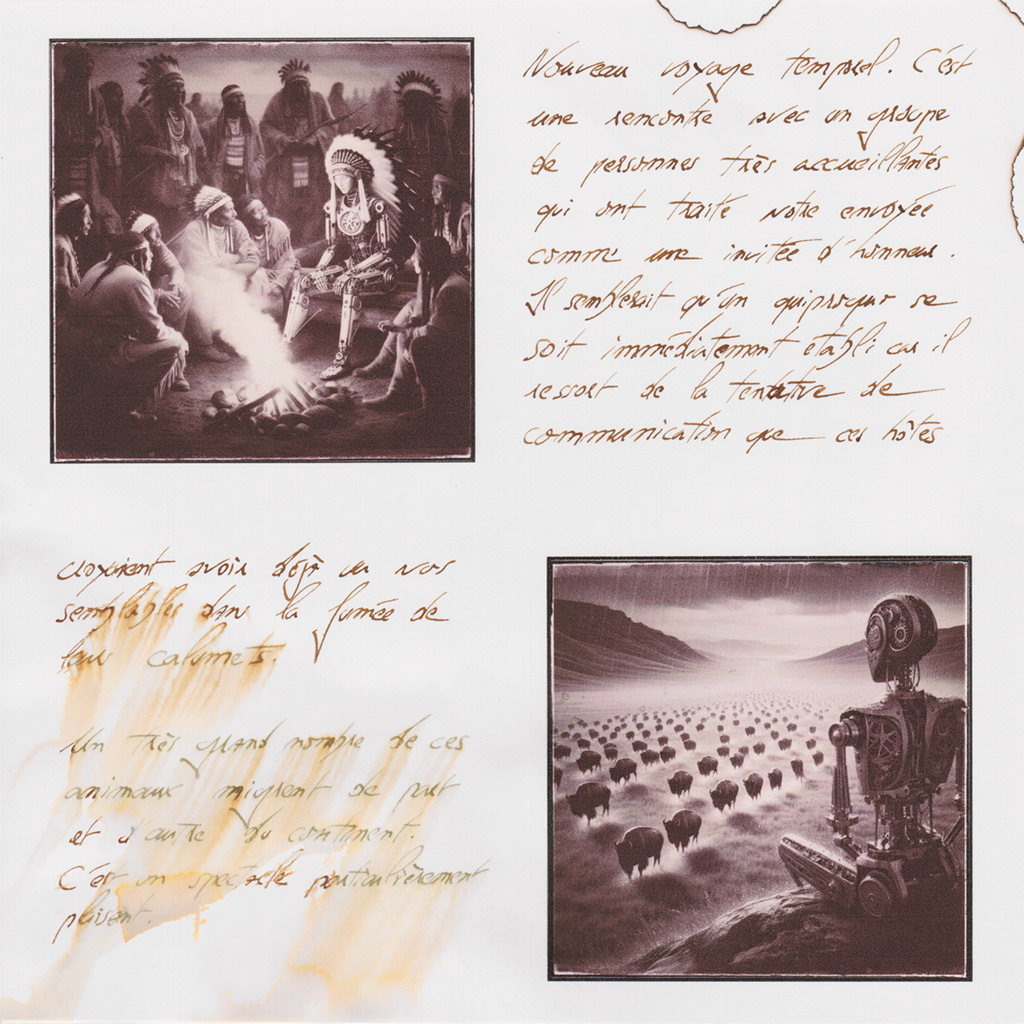 Nouveau voyage temporel. C'est
une rencontre avec un groupe
de personnes très accueillantes
qui ont traité notre envoyée
comme une invitée d'honneur.
Il semblerait qu'un quiproquo se
soit immédiatement établi car il
ressort de la tentative de
communication que ces hôtes
croyaient avoir déjà vu nos
semblables dans la fumée de
leur calumets.
Un très grand nombre de ces
animaux migrent de part
et d'autre du continent.
C'est un spectacle particulièrement
plaisant.